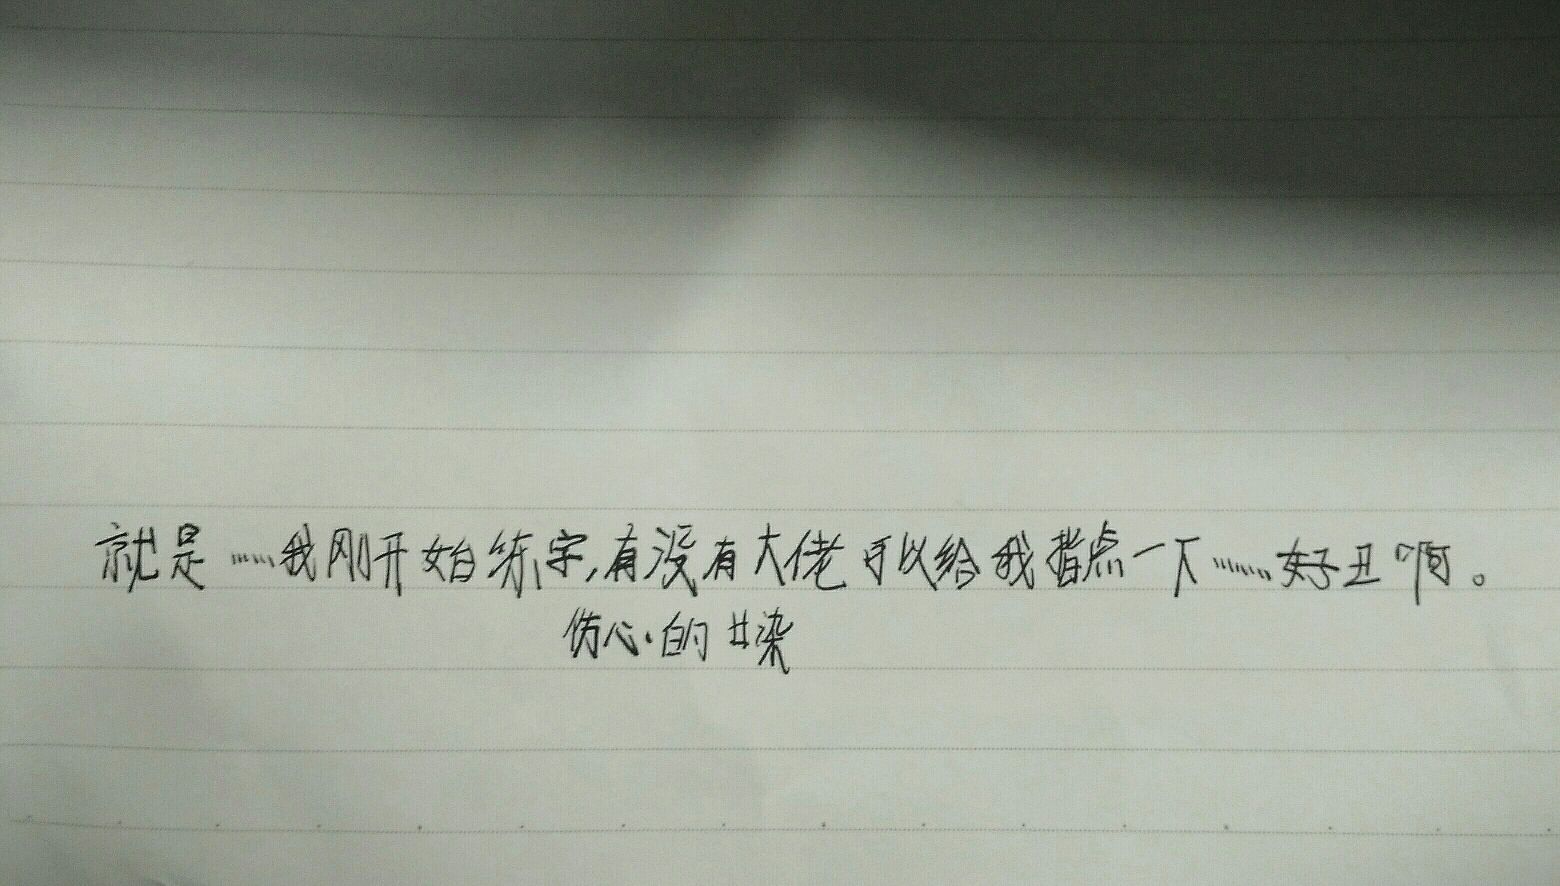 就是……我刚开始练字,有没有大佬可以给我指点一下……好丑啊。
伤心·的廿染